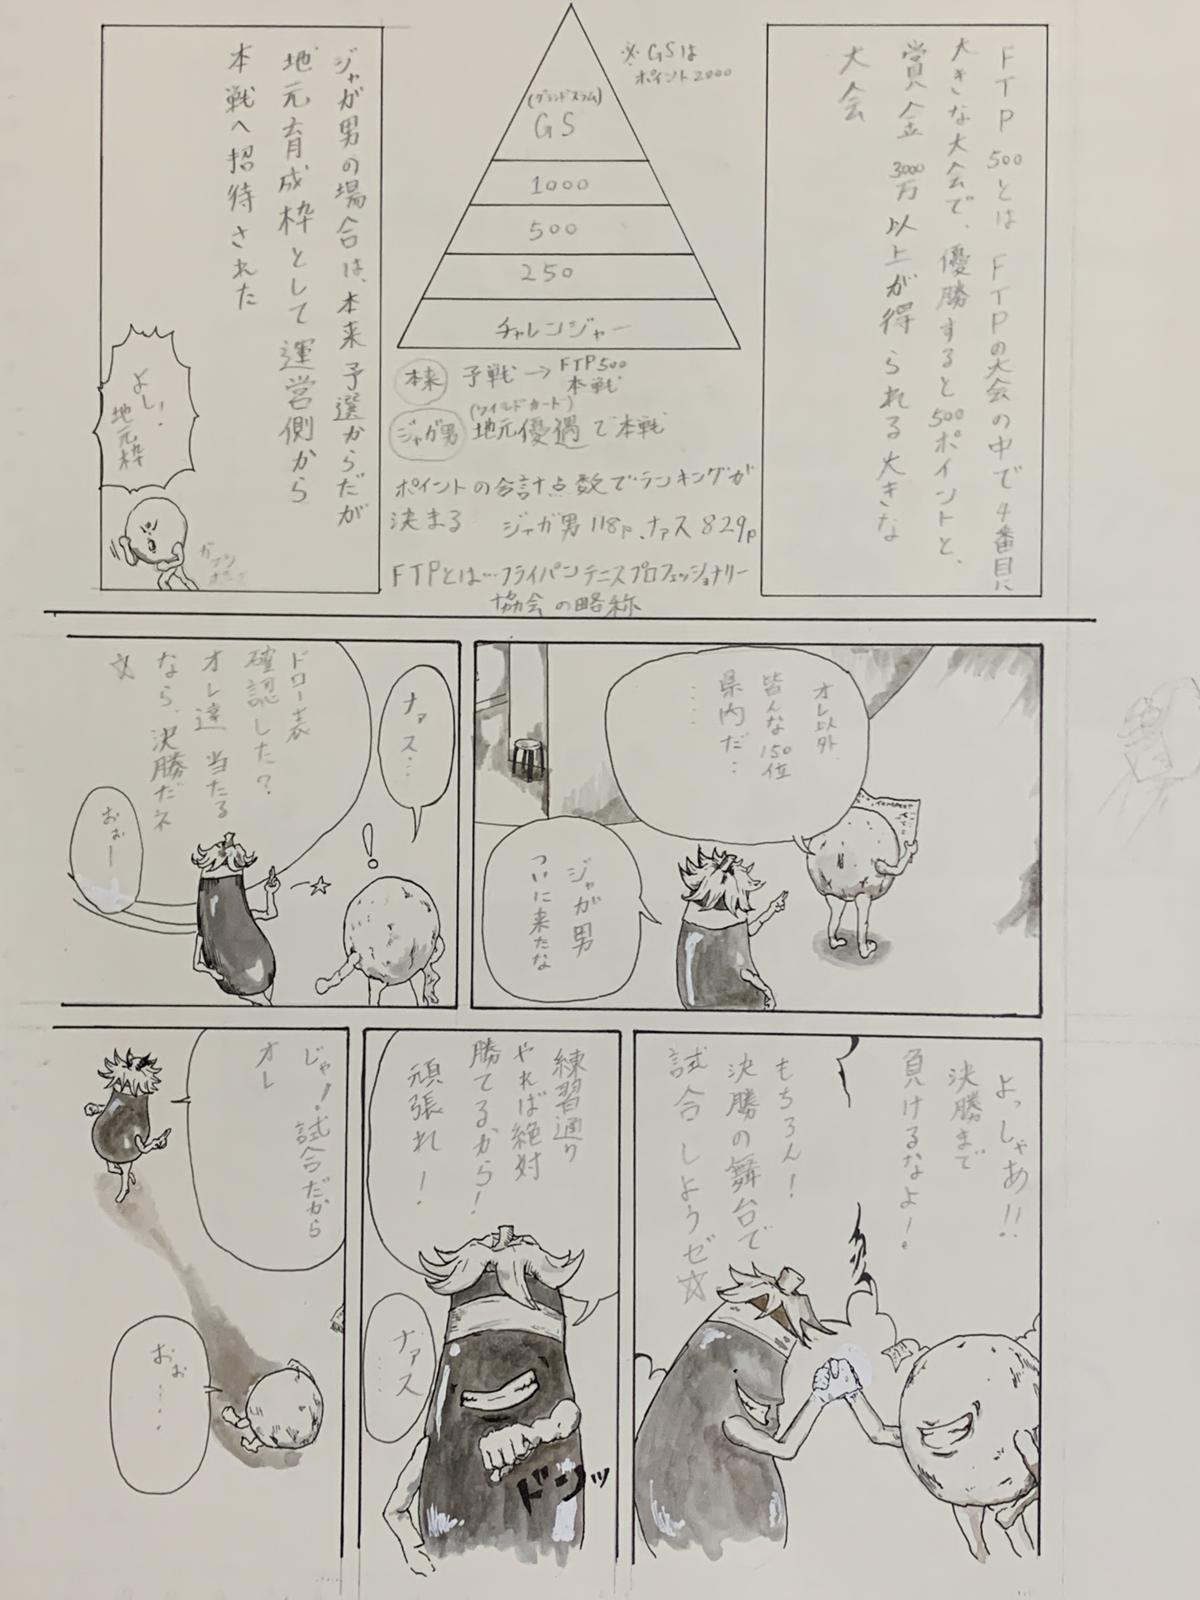 FTP500とはFTPの大会の中で4番目に
大きな大会で、優勝すると500ポイントと、
賞金3000万以上が得られる大きな
大会
※GSは
ポイント2000
(グランドスラム)
GS
1000
500
250
チャレンジャー
本来 予戦→FTP500
本戦
(ワイルドカード)
ジャガ男 地元優遇で本戦
ポイントの合計点数でランキングが
決まる ジャガ男118p、ナァス829p
FTPとは…フライパンテニスプロフェッショナリー
協会の略称
ジャガ男の場合は、本来予選からだが
地元育成枠として運営側から
本戦へ招待された
よし!
地元枠
オレ以外
皆んな150位
県内だ…
……
ジャガ男
ついに来たな
ナァス…
!
ドロー表
確認した?
オレ達当たる
なら、決勝だネ
☆
おぉー
よっしゃあ!!
決勝まで
負けるなよ!
もちろん!
決勝の舞台で
試合しようゼ☆
練習通り
やれば絶対
勝てるから!
頑張れ!
ナァス
……
ドンッ
じゃ!試合だから
オレ
おぉ
……